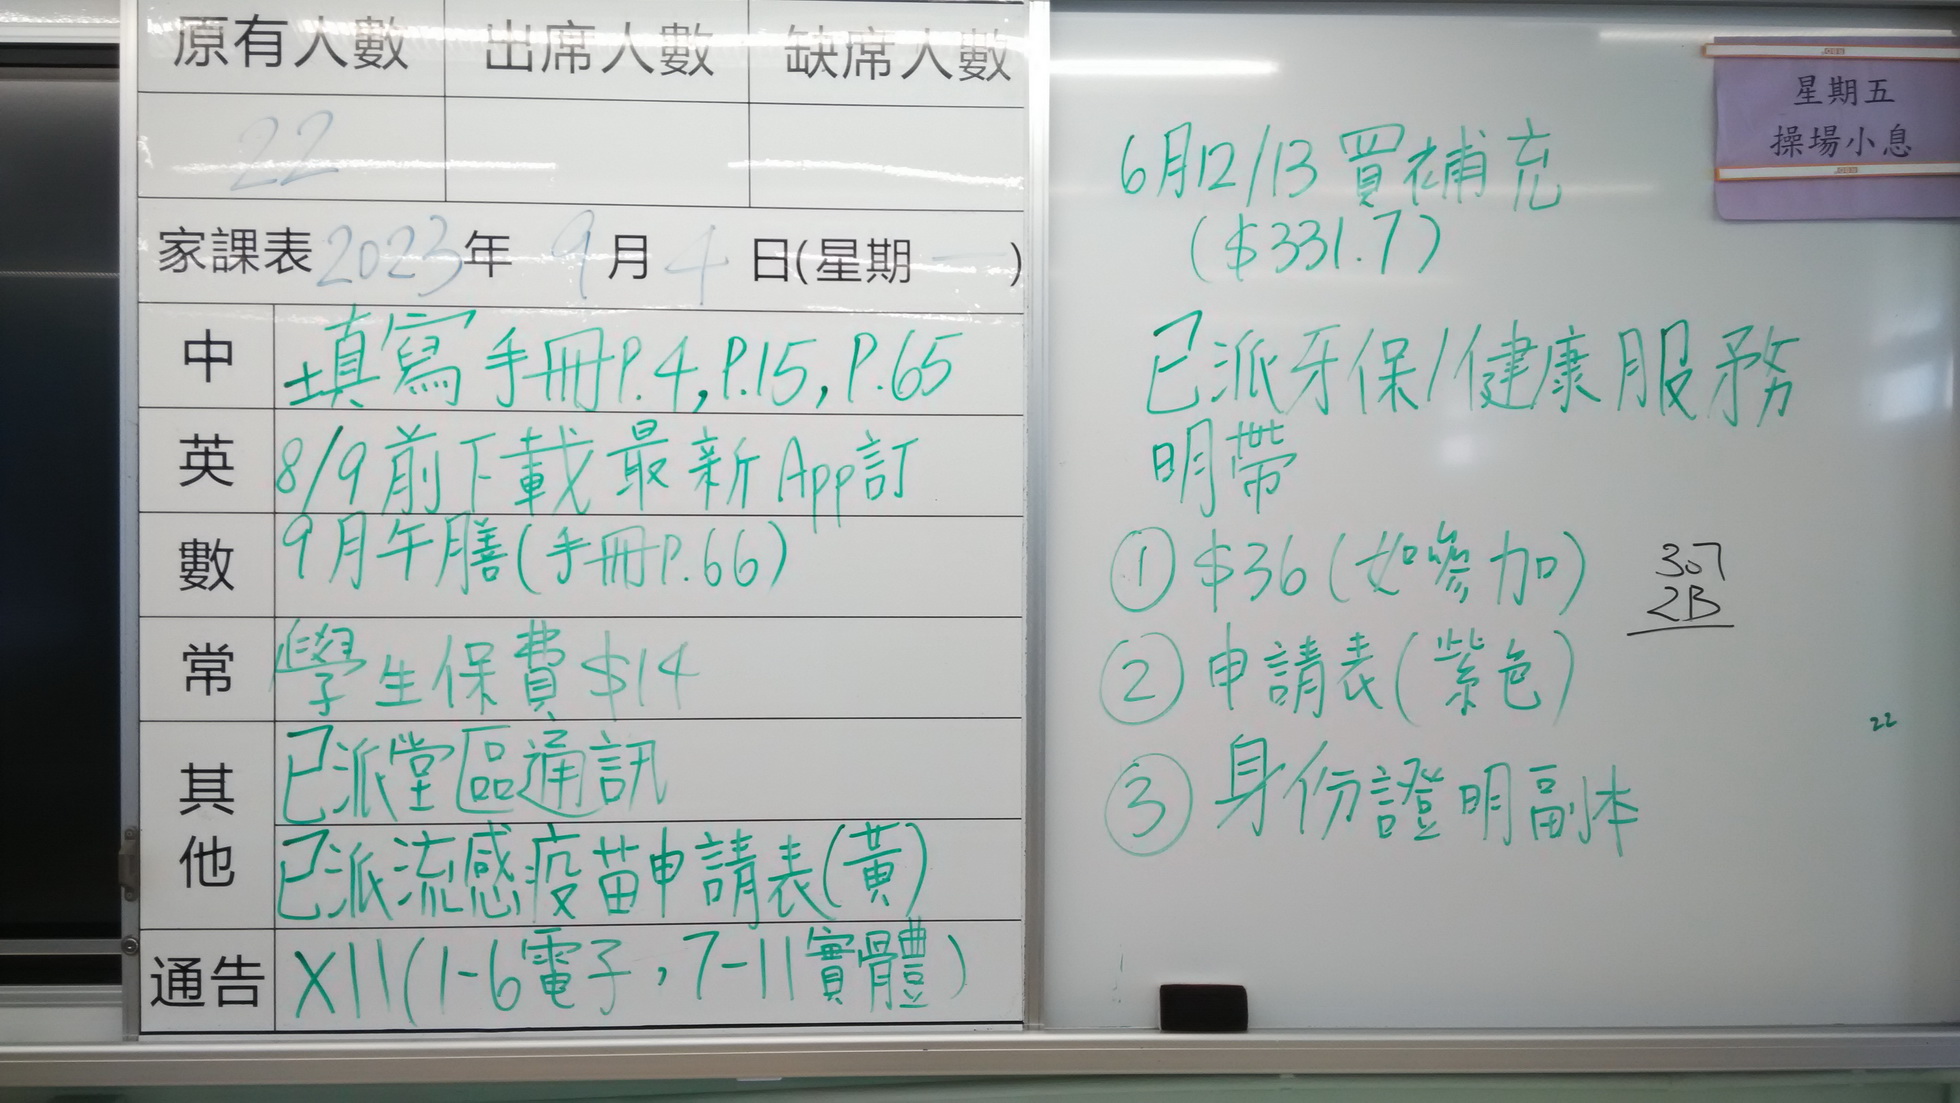 原有人數 出席人數 缺席人數
22
家課表 2023年 9月 4日(星期一)
中 填寫手冊P.4, P.15, P.65
英 8/9前下載最新App訂
數 9月午膳(手冊P.66)
常 學生保費$14
其他 已派堂區通訊
已派流感疫苗申請表(黃)
通告 X11(1-6電子，7-11實體)
星期五
操場小息
6月12/13買補充
($331.7)
已派牙保/健康服務
明帶
① $36(如參加)
② 申請表(紫色)
③ 身份證明副本
307
2B
22